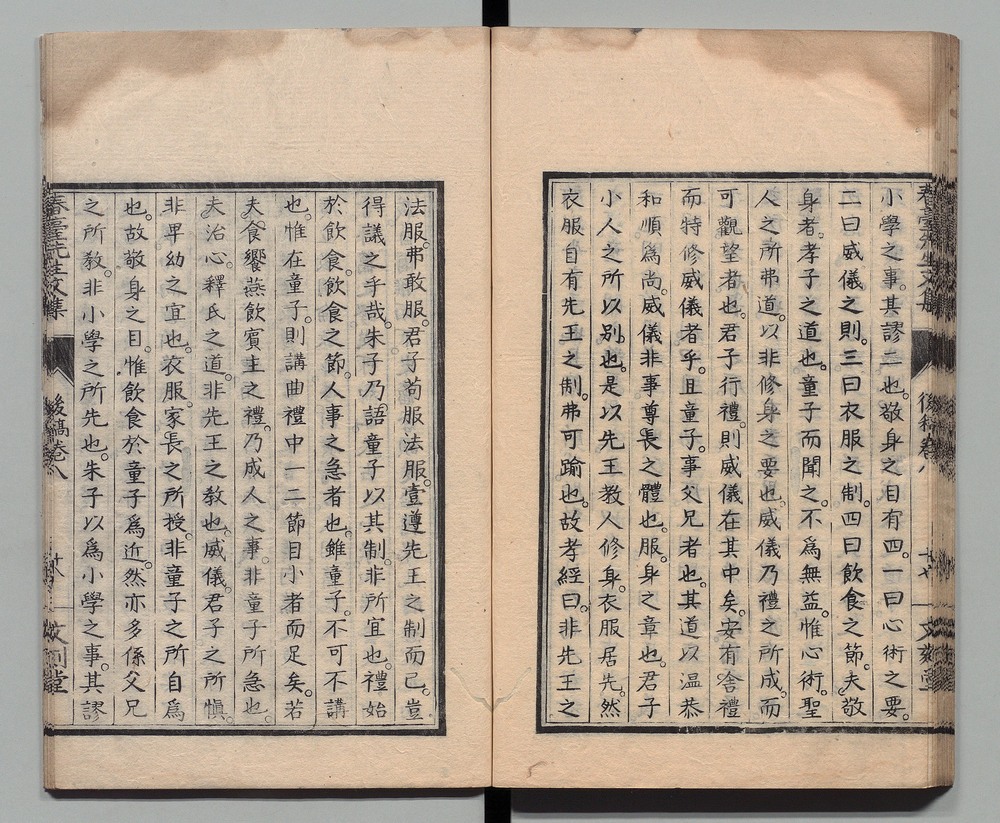 小學之事。其謬二也。敬身之目有四。一曰心術之要。
二曰威儀之則。三曰衣服之制。四曰飲食之節。夫敬
身者。孝子之道也。童子而聞之。不爲無益。惟心術。聖
人之所弗道。以非修身之要也。威儀乃禮之所成。而
可觀望者也。君子行禮。則威儀在其中矣。安有舍禮
而特修威儀者乎。且童子。事父兄者也。其道以温恭
和順爲尚。威儀非事尊長之體也。服。身之章也。君子
小人之所以別也。是以先王教人修身。衣服居先。然
衣服自有先王之制。弗可踰也。故孝經曰。非先王之
春臺先生文集
後稿卷八
法服。弗敢服。君子苟服法服。壹遵先王之制而已。豈
得議之乎哉。朱子乃語童子以其制。非所宜也。禮始
於飲食。飲食之節。人事之急者也。雖童子。不可不講
也。惟在童子。則講曲禮中一二節目小者而足矣。若
夫食饗燕飲賓主之禮。乃成人之事。非童子所急也。
夫治心。釋氏之道。非先王之教也。威儀。君子之所愼。
非卑幼之宜也。衣服。家長之所授。非童子之所自爲
也。故敬身之目。惟飲食於童子爲近。然亦多係父兄
之所教。非小學之所先也。朱子以爲小學之事。其謬
春臺先生文集
後稿卷八